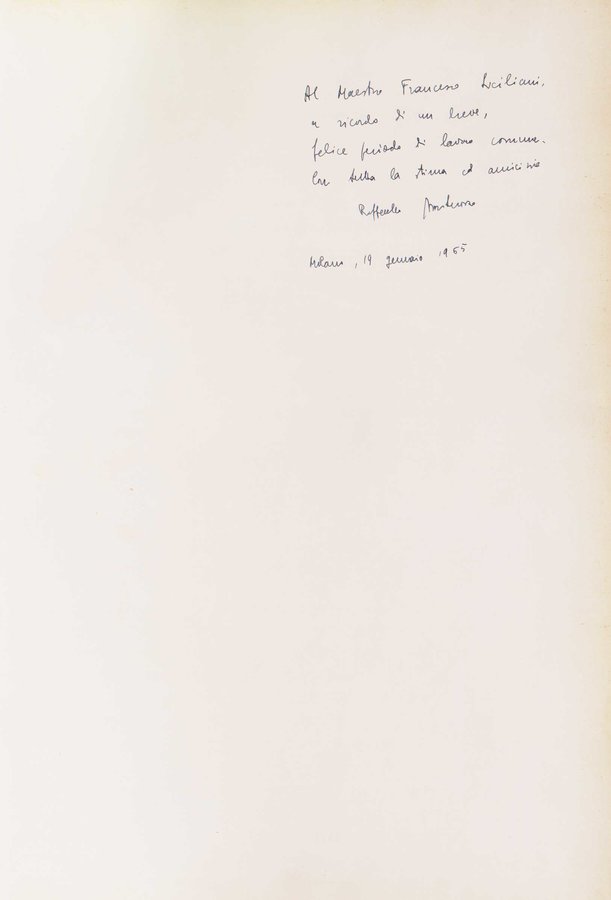 Al Maestro Francesco Siciliani,
a ricordo di un breve,
felice periodo di lavoro comune.
Con tutta la stima ed amicizia
Raffaello Monterosso
Milano, 19 gennaio 1965